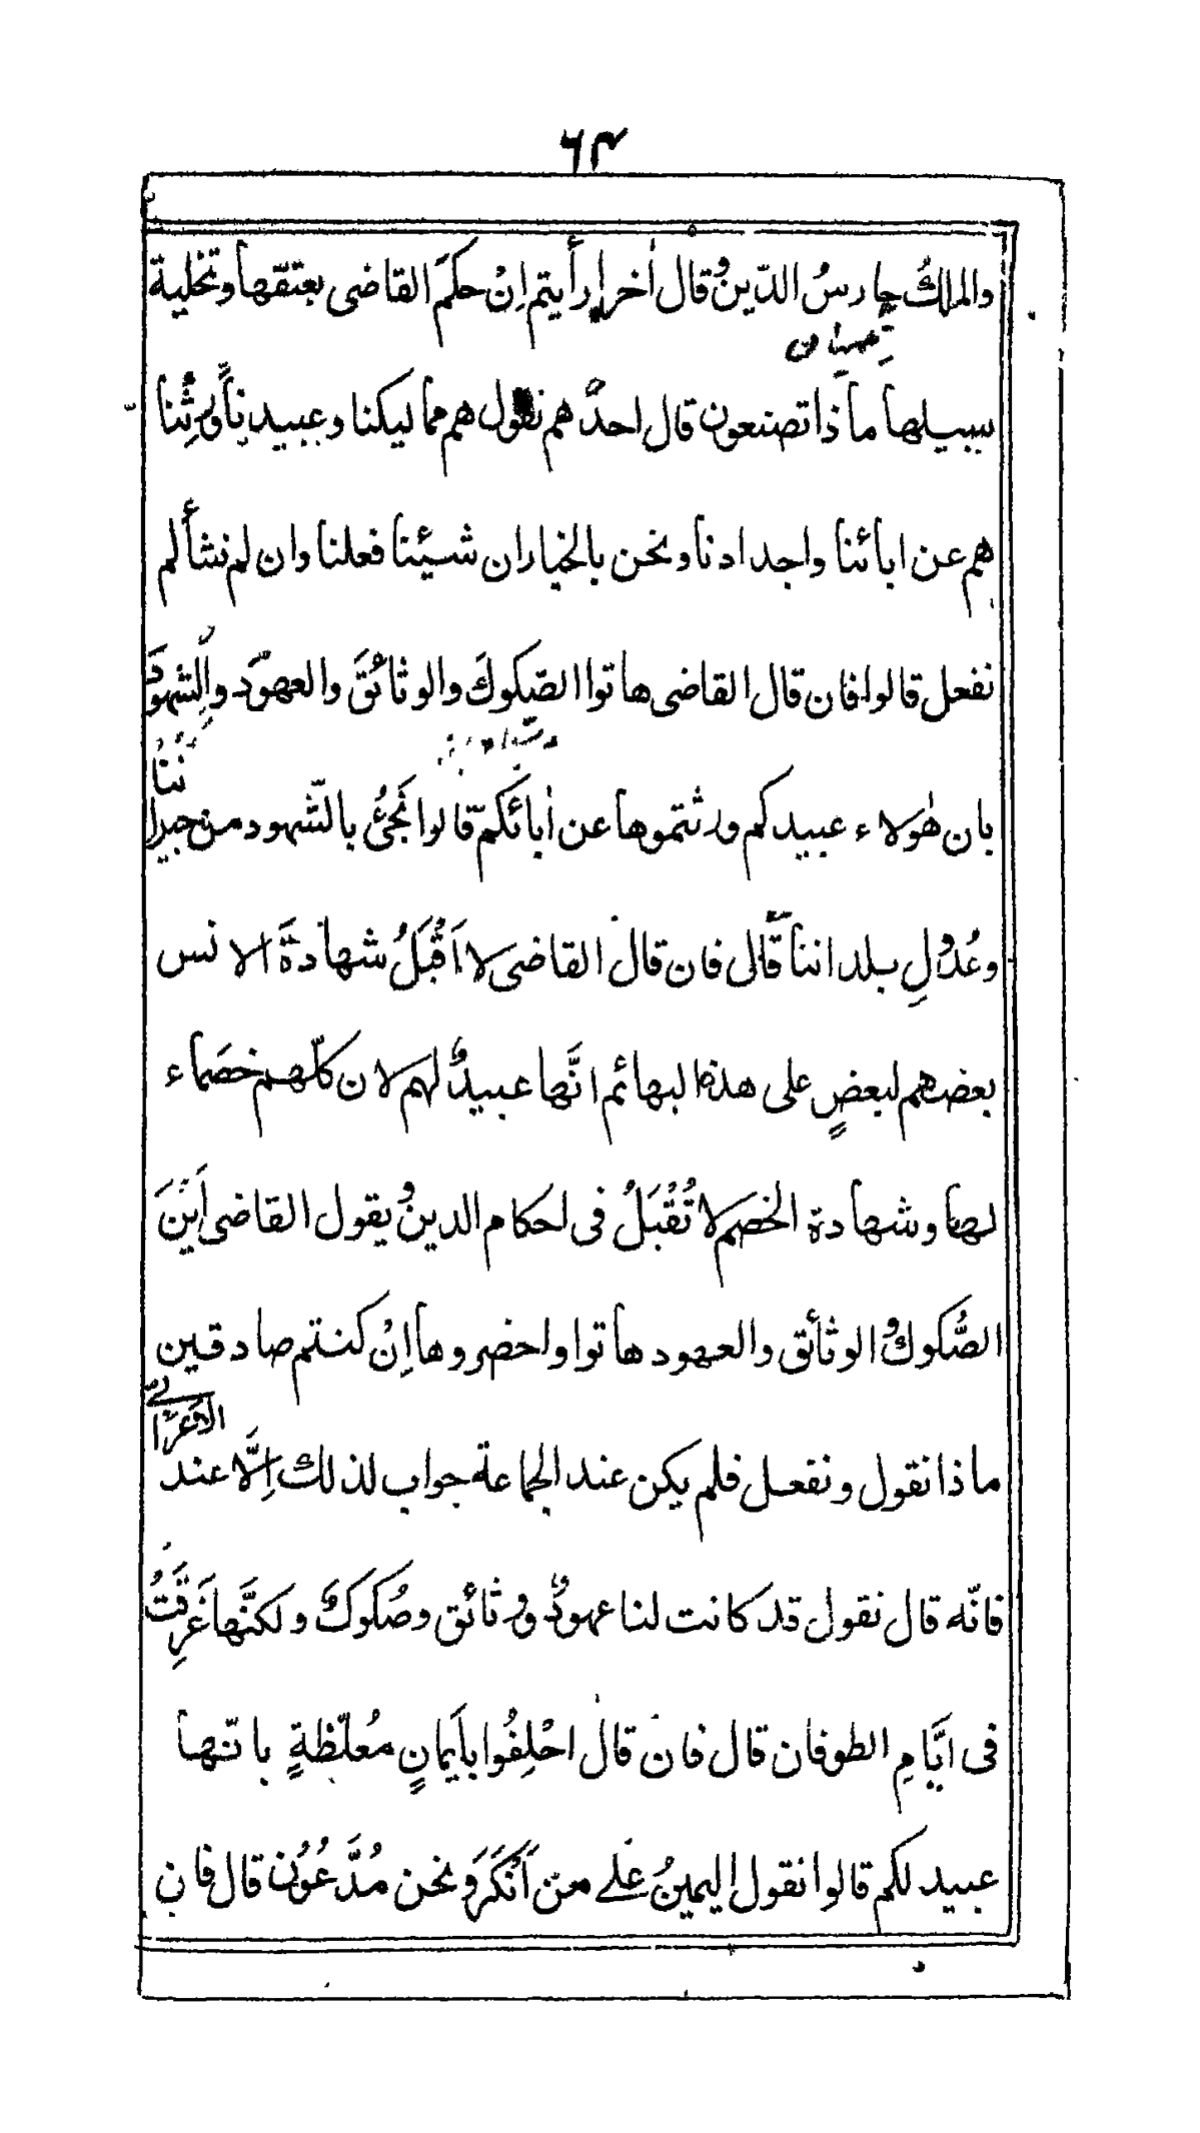 ٦٣
والملكُ حارسُ الدّينِ وُقال اٰخر أرأيتم اِنْ حكمَ القاضى بعتقها وتخلية
نگهبان
سبيلها ما ذا تصنعون قال احدُهم نقول هم مماليكنا وعبيدنا وَرِثنا
هم عن ابائنا واجدادنا ونحن بالخيار ان شيئنا فعلنا وان لم نشأ لم
نفعل قالوا فان قال القاضى هاتوا الصّكوكَ والوثائقَ والعهودَ والشهودَ
بان هٰولاء عبيدكم ورثتموها عن اٰبائكم قالوا نجئُ بالشّهود من جيرا
ننا
وعُدُولِ بلداننا قال فان قال القاضى لا اَقْبَلُ شهادةَ الانس
بعضهم لبعضٍ على هذه البهائم انَّها عبيدٌ لهم لان كلّهم خصَماء
لها وشهادة الخصم لا تُقْبَلُ فى احكام الدين وُيقول القاضى اَيْنَ
الصُّكوكُ والوثائق والعهود هاتوا واحضروها اِنْ كنتم صادقين
ماذا نقول ونفعل فلم يكن عند الجماعة جواب لذلك اِلَّا عند
الاعرابى
فانّه قال نقول قد كانت لنا عهودٌ ووثائق وصُكوكَ ولكنَّها غَرِقَتْ
فى ايَّامِ الطوفان قال فان قال احْلِفُوا باَيمانٍ مُغلّظةٍ بانّها
عبيد لكم قالوا نقول اليمينُ عَلى من اَنْكَرَ ونحن مُدَّعُوْن قال فان